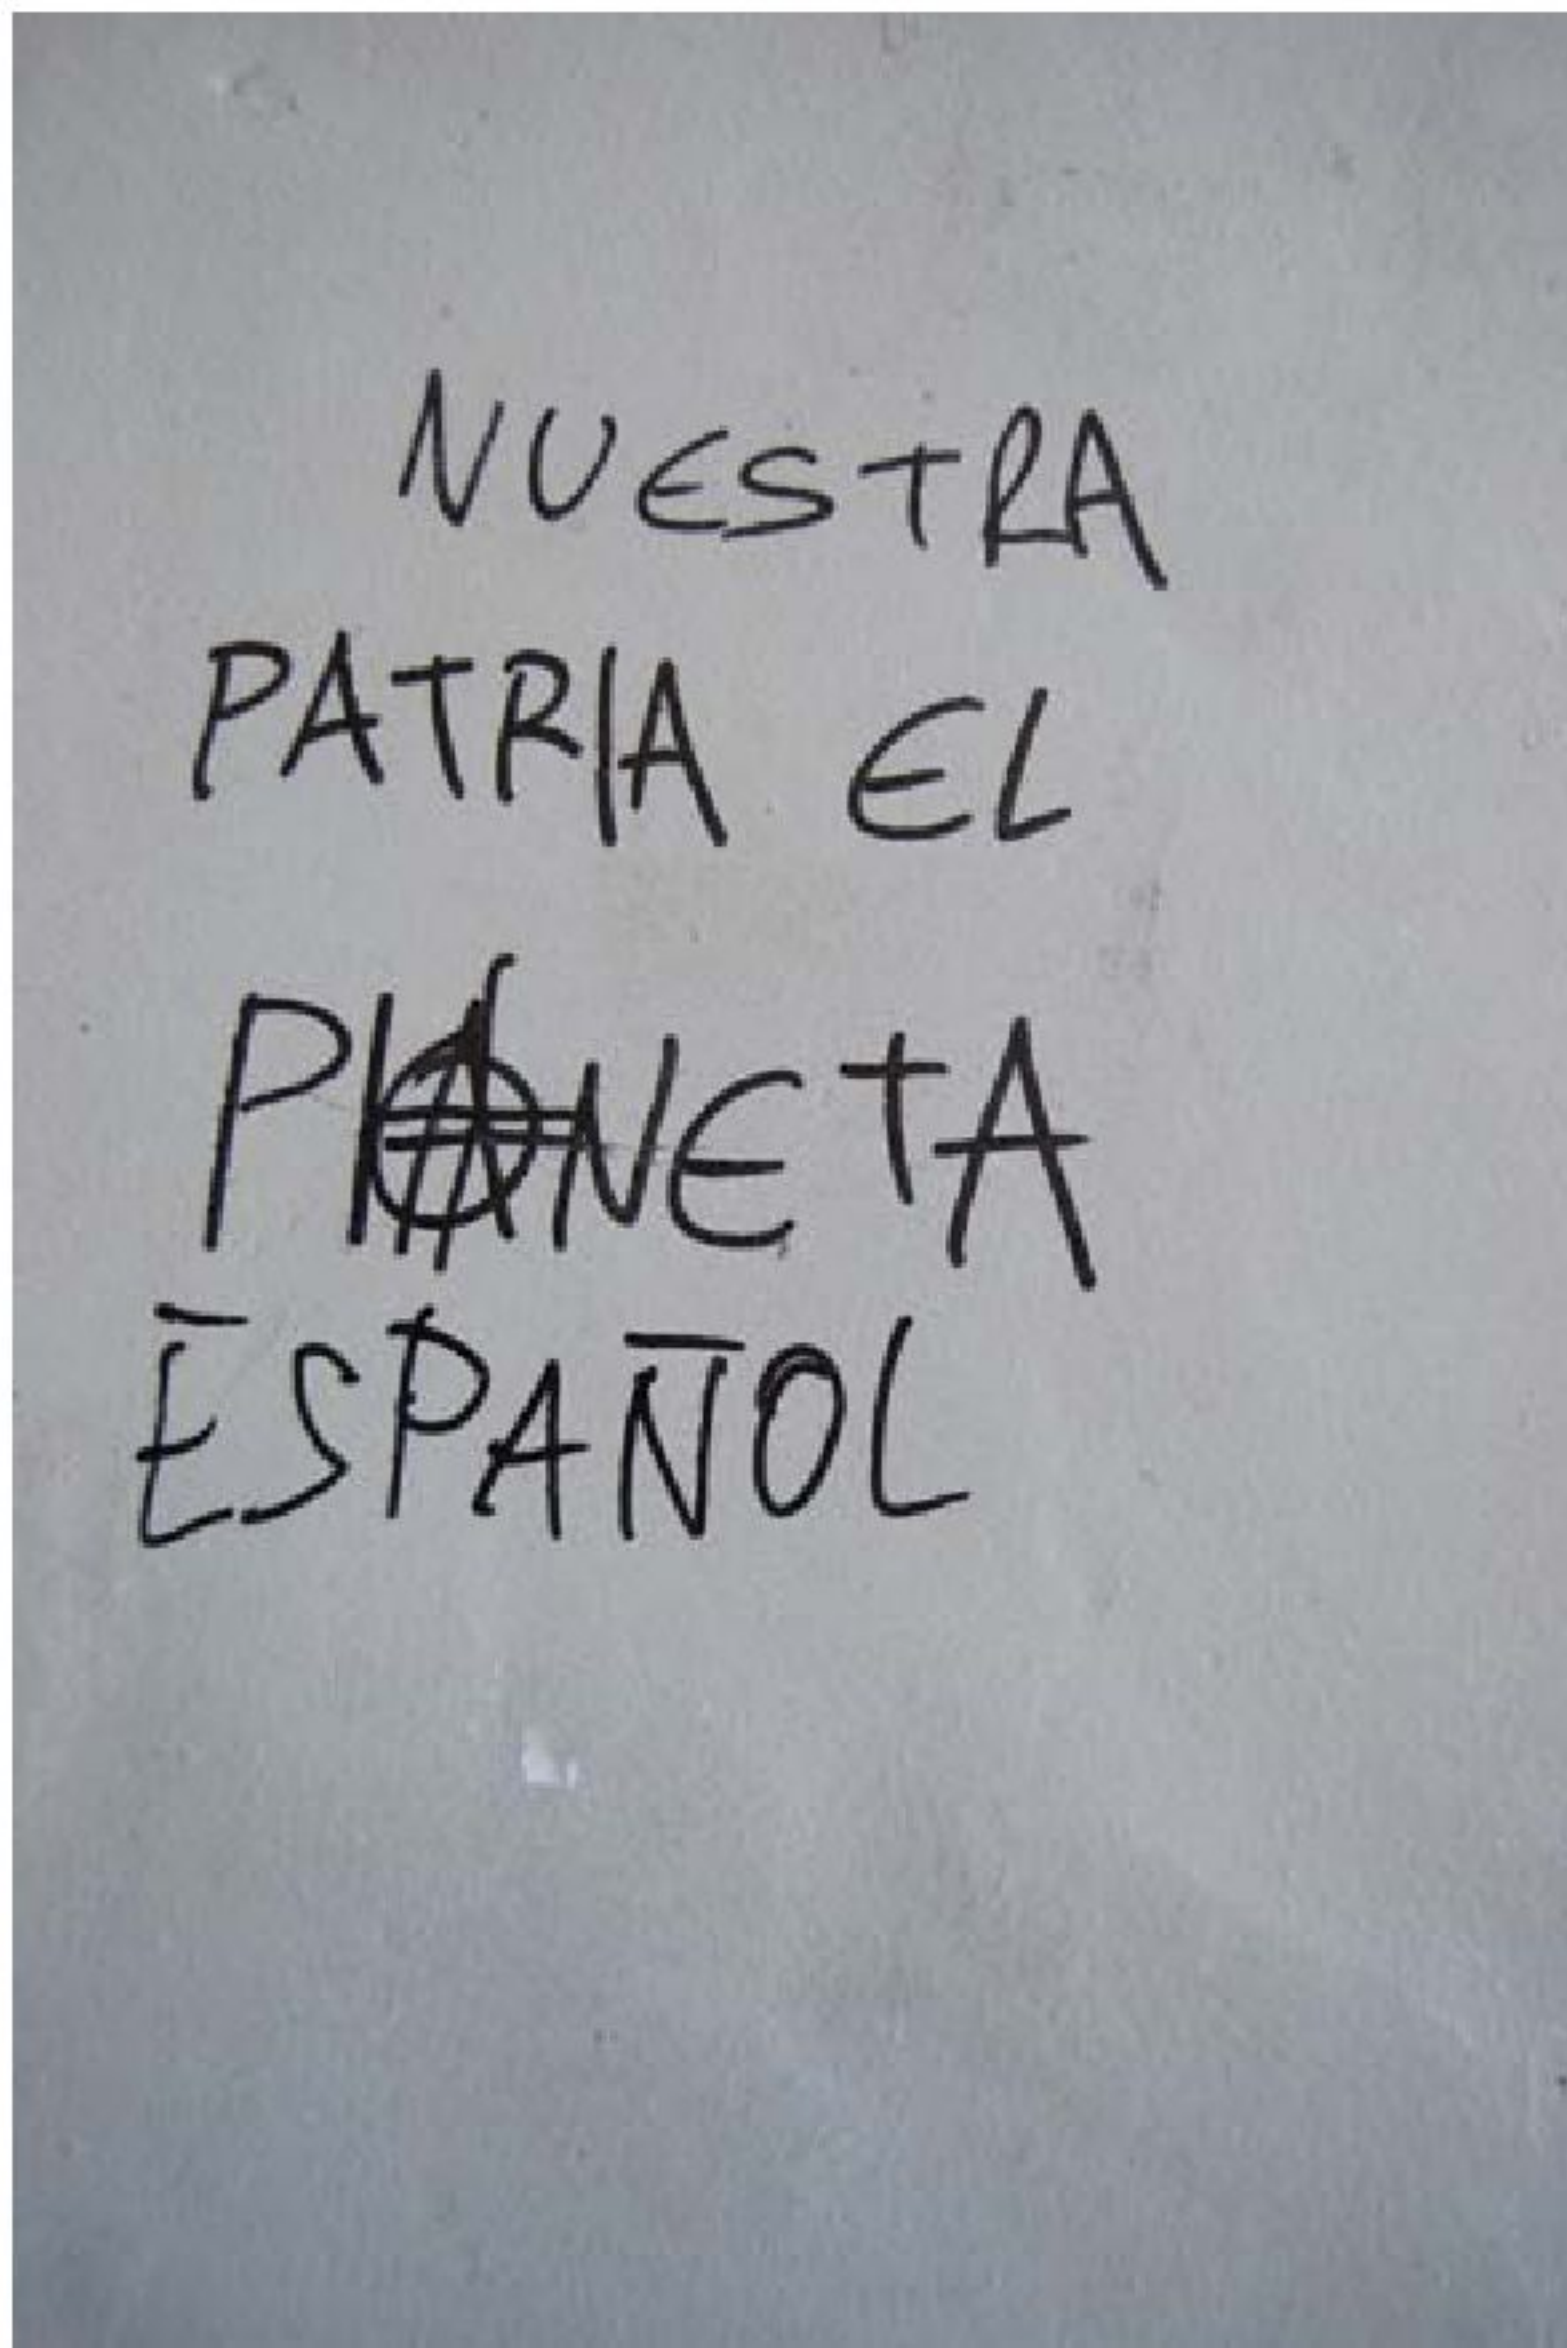 NUESTRA
PATRIA EL
PLANETA
ESPAÑOL